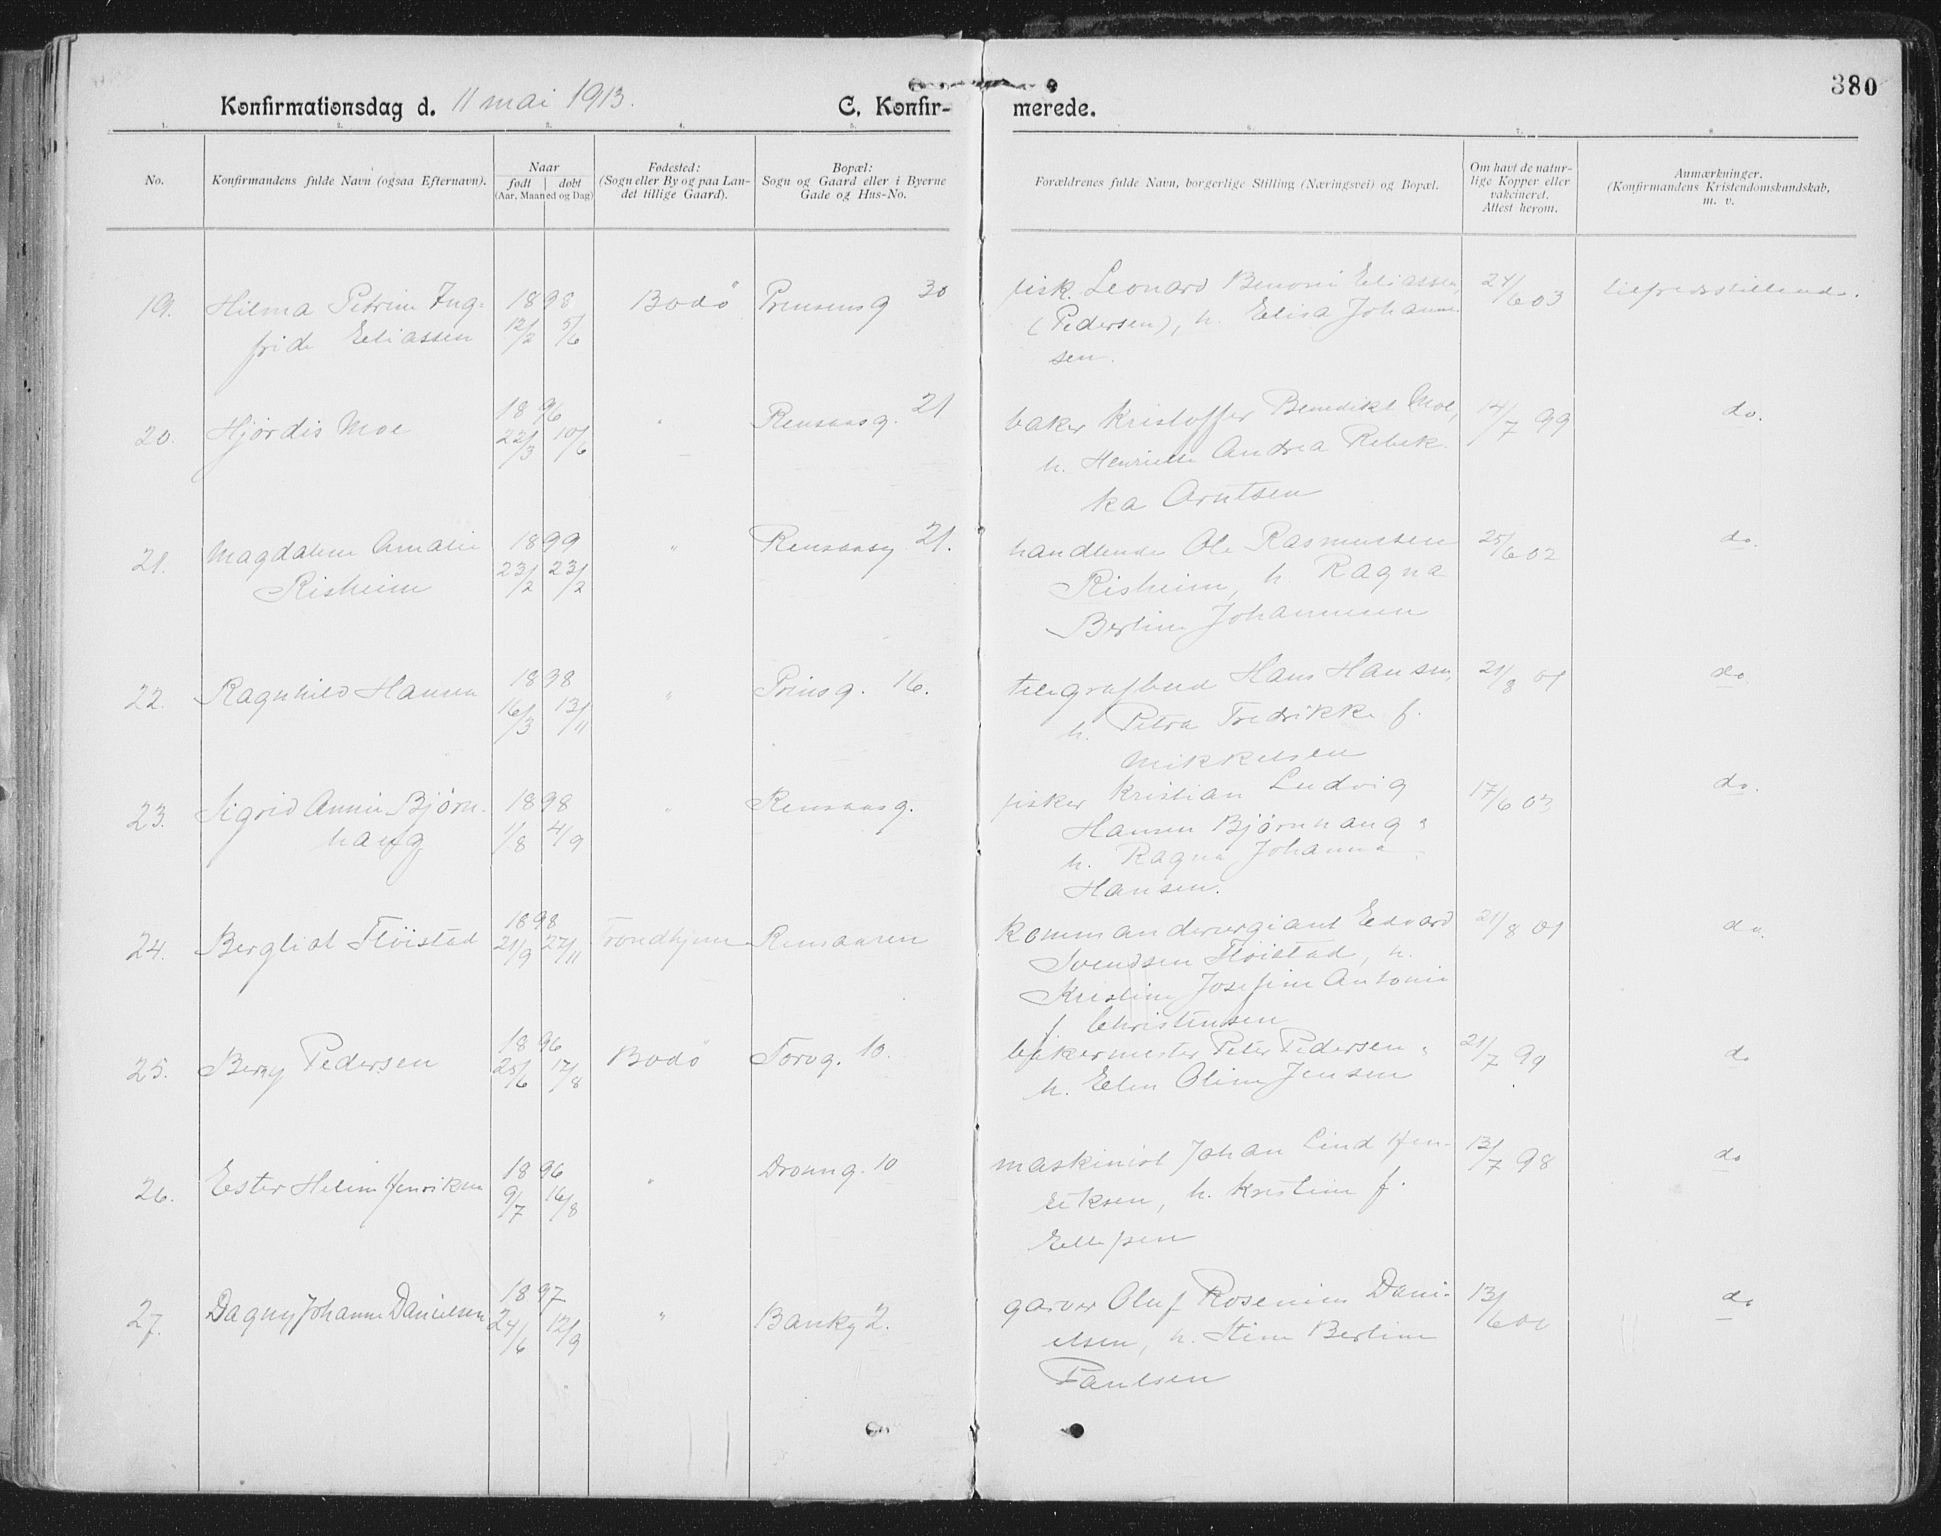 380
Konfirmationsdag d. 11 mai 1913. C. Konfir- merede.
1. 2. 3. 4. 5. 6. 7. 8.
No.
Konfirmandens fulde Navn (ogsaa Efternavn).
Naar
født døbt
(Aar, Maaned og Dag)
Fødested:
(Sogn eller By og paa Lan-
det tillige Gaard).
Bopæl:
Sogn og Gaard eller i Byerne
Gade og Hus-No.
Forældrenes fulde Navn, borgerlige Stilling (Næringsvei) og Bopæl.
Om havt de natur-
lige Kopper eller
vakcineret.
Attest herom.
Anmærkninger.
(Konfirmandens Kristendomskundskab,
m. v.
19. Hilma Petrine Ing- 1898 Bodö Prinsensg 30 fisk. Leonard Benoni Eliassen, 24/6 03 tilfredsstillende.
fride Eliassen 12/2 5/6 (Pedersen), h. Elisa Johanne
sen.
20. Hjørdis Moe 1896 " Rensaasg. 21 baker Kristoffer Benedikt Moe, 14/7 99 do.
22/3 10/6 h. Henriette Andrea Rebek
ka Arntsen
21. Magdalene Amalie 1899 " Rensaasg 21. handlende Ole Rasmussen 25/6 02 do.
Risheim 23/2 23/2 Risheim, h. Ragna
Bertine Johannesen
22. Ragnhild Hansen 1898 " Prinsg. 16. telegrafbud Hans Hansen, 21/8 01 do
16/3 13/11 h. Petra Fredrikke f.
Mikkelsen
23. Sigrid Annie Bjørn- 1898 " Rensaasg. fisker Kristian Ludvig 17/6 03 do.
haug 1/8 4/9 Hansen Bjørnhaug
h. Ragna Johanna
Hansen.
24. Bergliot Flöistad 1898 Trondhjem Rensaasen kommandersergiant Edvard 21/8 01 do.
21/9 27/11 Svendsen Flöistad, h.
Kristine Josefine Antonie
f. Christensen
25. Berny Pedersen 1896 Bodö Torvg. 10. bakermester Peter Pedersen 21/7 99 do
25/6 17/8 h. Elen Oline Jensen
26. Ester Helene Henriksen 1896 " Dronng. 10 maskinist Johan Lind Hen- 13/7 98 do
9/7 16/8 riksen, h. Kristine f.
Ellefsen
27. Dagny Johanne Danielsen 1897 " Bankg 2. garver Oluf Rosenius Dani- 13/6 01 do
24/6 12/9 elsen, h. Stine Bertine
Paulsen